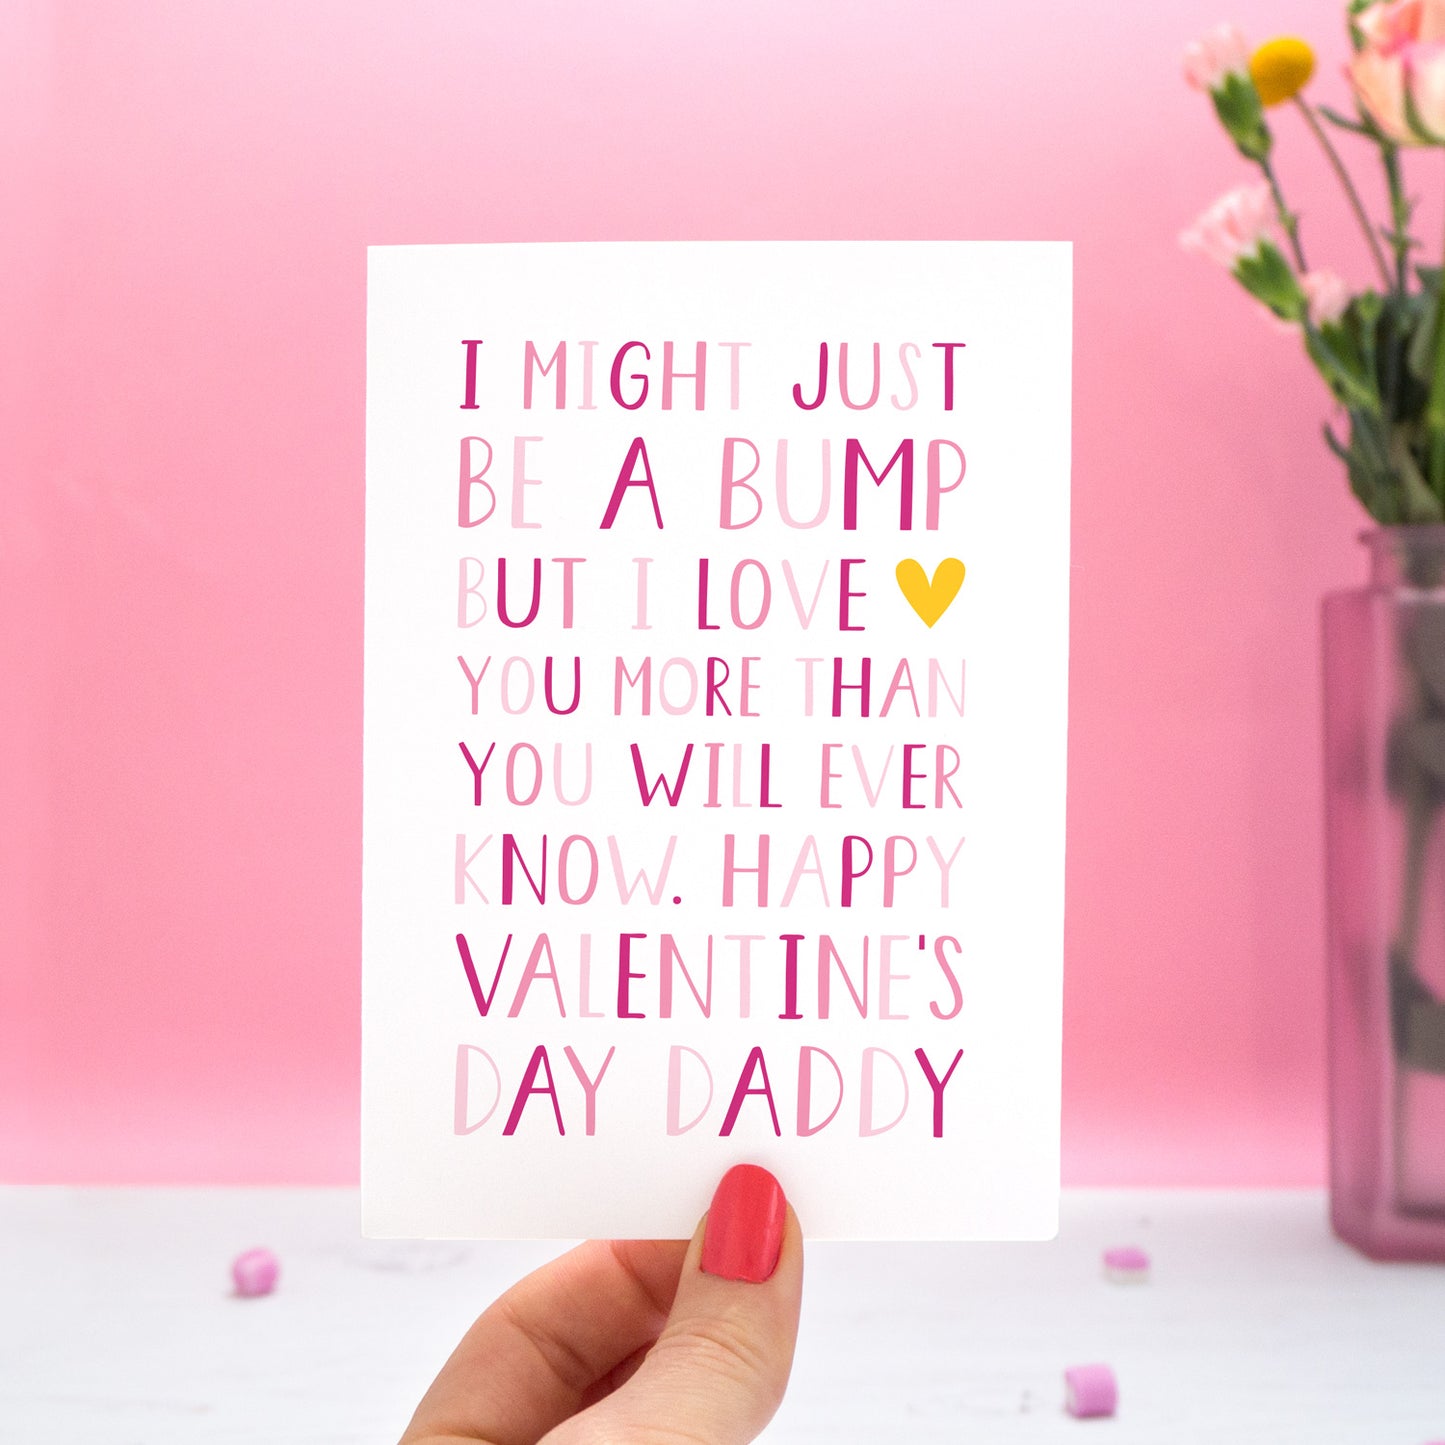 I MIGHT JUST
BE A BUMP
BUT I LOVE
YOU MORE THAN
YOU WILL EVER
KNOW. HAPPY
VALENTINE'S
DAY DADDY